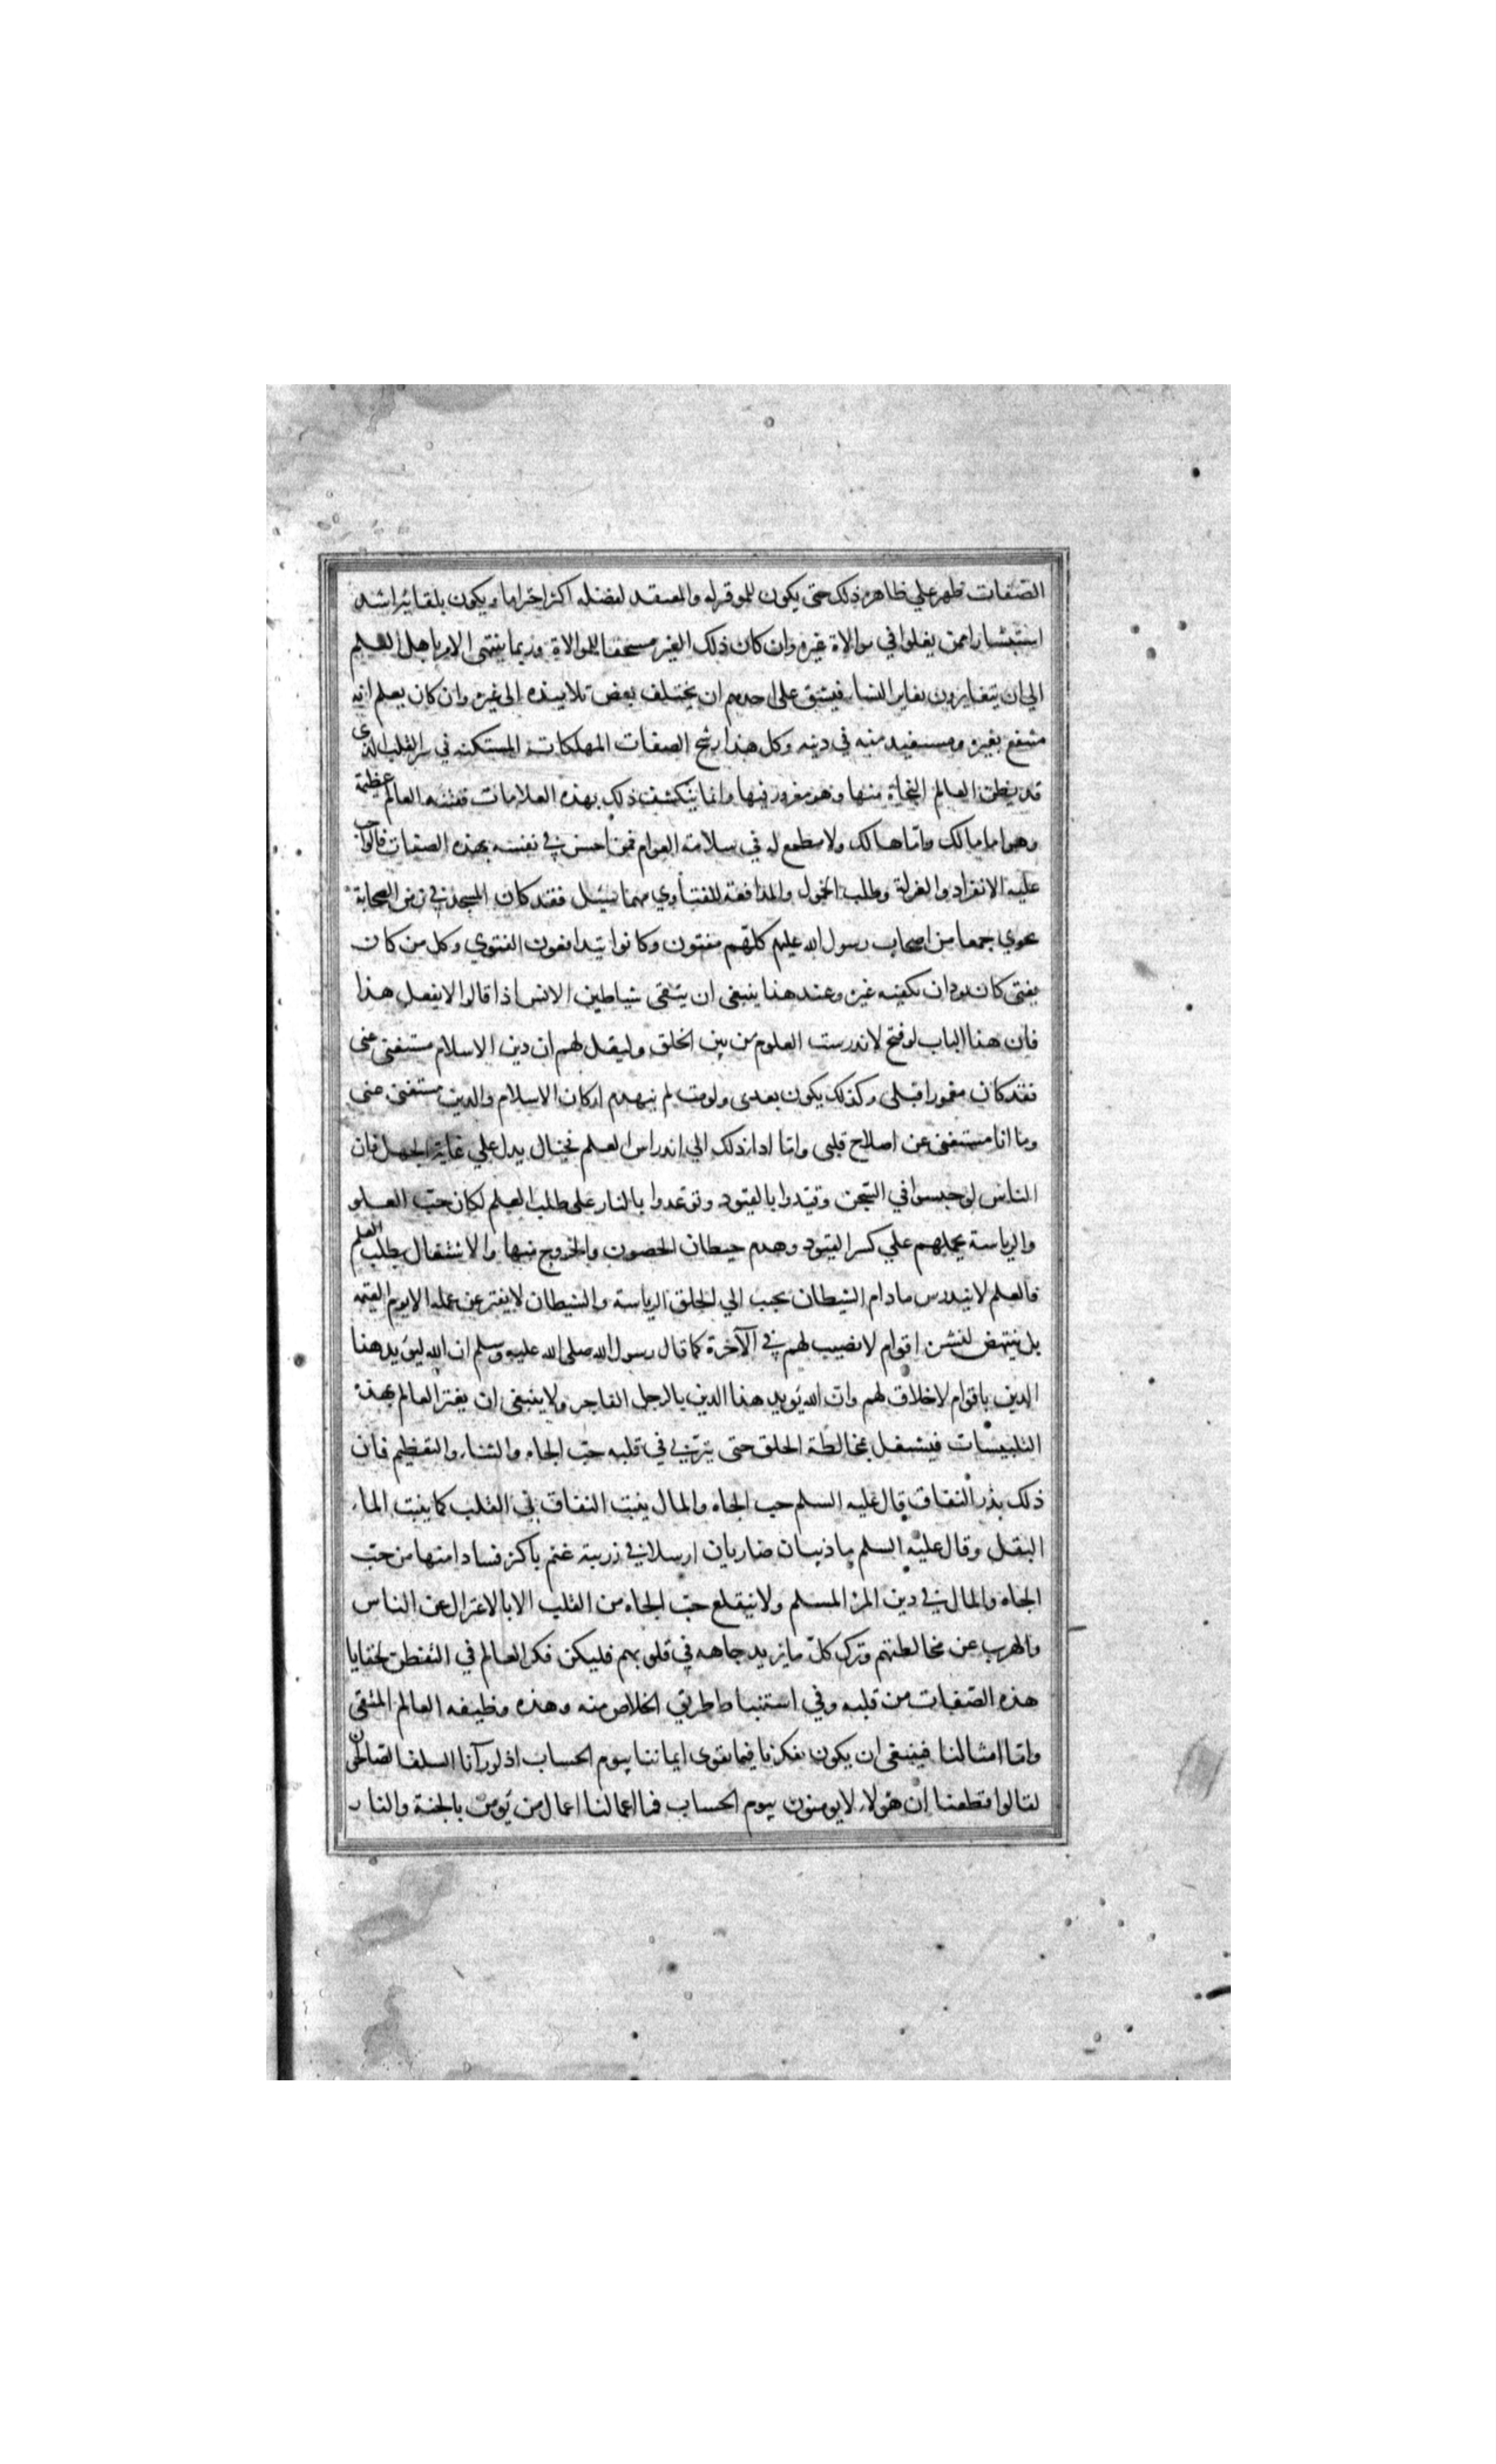 الصفات تظهر علي ظاهره ذلك حتى يكون للموقر له والمعتقد لفضله اكثر احتراما ويكون بلقائه اشد
استبشارا ممن يغلوا في موالاة غيره وان كان ذلك الغير مستحقا للموالاة وربما ينتهى الامر باهل العلم
الي ان يتغايرون تغاير النساء فيشق على احدهم ان يختلف بعض تلاميذه الى غيره وان كان يعلم انه
منتفع بغيره ومستفيد منه في دينه وكل هذا رشح الصفات المهلكات المستكنه في سر القلب الذى
قد يظن العالم النجاة منها وهو مغرور فيها وانما ينكشف ذلك بهذه العلامات ففتنه العالم عظيمة
وهو اما مالك واما هالك ولا مطمع له في سلامة العوام فمن احس في نفسه بهذه الصفات فالواجب
عليه الانفراد والعزلة وطلب الخمول والمدافعة للفتاوي مهما سيل فقد كان المسجد في زمن الصحابة
يحوي جمعا من اصحاب رسول الله عليه كلهم مفتون وكانوا يتدافعون الفتوي وكل من كان
يفتى كان يود ان يكفيه غيره وعند هذا ينبغى ان يتقى شياطين الانس اذا قالوا لا تفعل هذا
فان هذا الباب لو فتح لاندرست العلوم من بين الخلق وليقل لهم ان دين الاسلام مستغنى عنى
فقد كان معمورا قبلى وكذلك يكون بعدى ولو مت لم ينهدم اركان الاسلام والدين مستغنى عنى
وما انا مستغنى عن اصلاح قلبى واما اداء ذلك الي اندراس العلم فخيال يدل علي غاية الجهل فان
الناس لو حبسوا في السجن وقيدوا بالقيود وتوعدوا بالنار على طلب العلم لكان حب العلو
والرياسة يحملهم علي كسر القيود وهدم حيطان الحصون والخروج منها والاشتغال بطلب العلم
فالعلم لا يندرس ما دام الشيطان يحبب الي الخلق الرياسة والشيطان لا يفتر عن عمله الا يوم القيمه
بل ينتهض لنشره اقوام لا نصيب لهم في الآخرة كما قال رسول الله صلى الله عليه وسلم ان الله ليؤيد هذا
الدين باقوام لا خلاق لهم وان الله يؤيد هذا الدين بالرجل الفاجر ولا ينبغى ان يغتر العالم بهذه
التلبيسات فيشتغل بمخالطة الخلق حتى يتربى في قلبه حب الجاه والثناء والتعظيم فان
ذلك بذر النفاق قال عليه السلم حب الجاه والمال ينبت النفاق في القلب كما ينبت الماء
البقل وقال عليه السلم ما ذيبان ضاريان ارسلا في زريبة غنم باكثر فسادا منها من حب
الجاه والمال في دين المرء المسلم ولا ينقلع حب الجاه من القلب الا بالاعتزال عن الناس
والهرب عن مخالطتهم وترك كل ما يزيد جاهه في قلوبهم فليكن فكر العالم في التفطن لخفايا
هذه الصفات من قلبه وفي استنباط طريق الخلاص منه وهذه وظيفه العالم المتقى
واما امثالنا فينبغى ان يكون تفكرنا فيما يقوى ايماننا بيوم الحساب اذ لو رآنا السلف الصالحون
لقالوا قطعنا ان هولاء لا يومنون بيوم الحساب فما اعمالنا اعمال من يؤمن بالجنة والنار